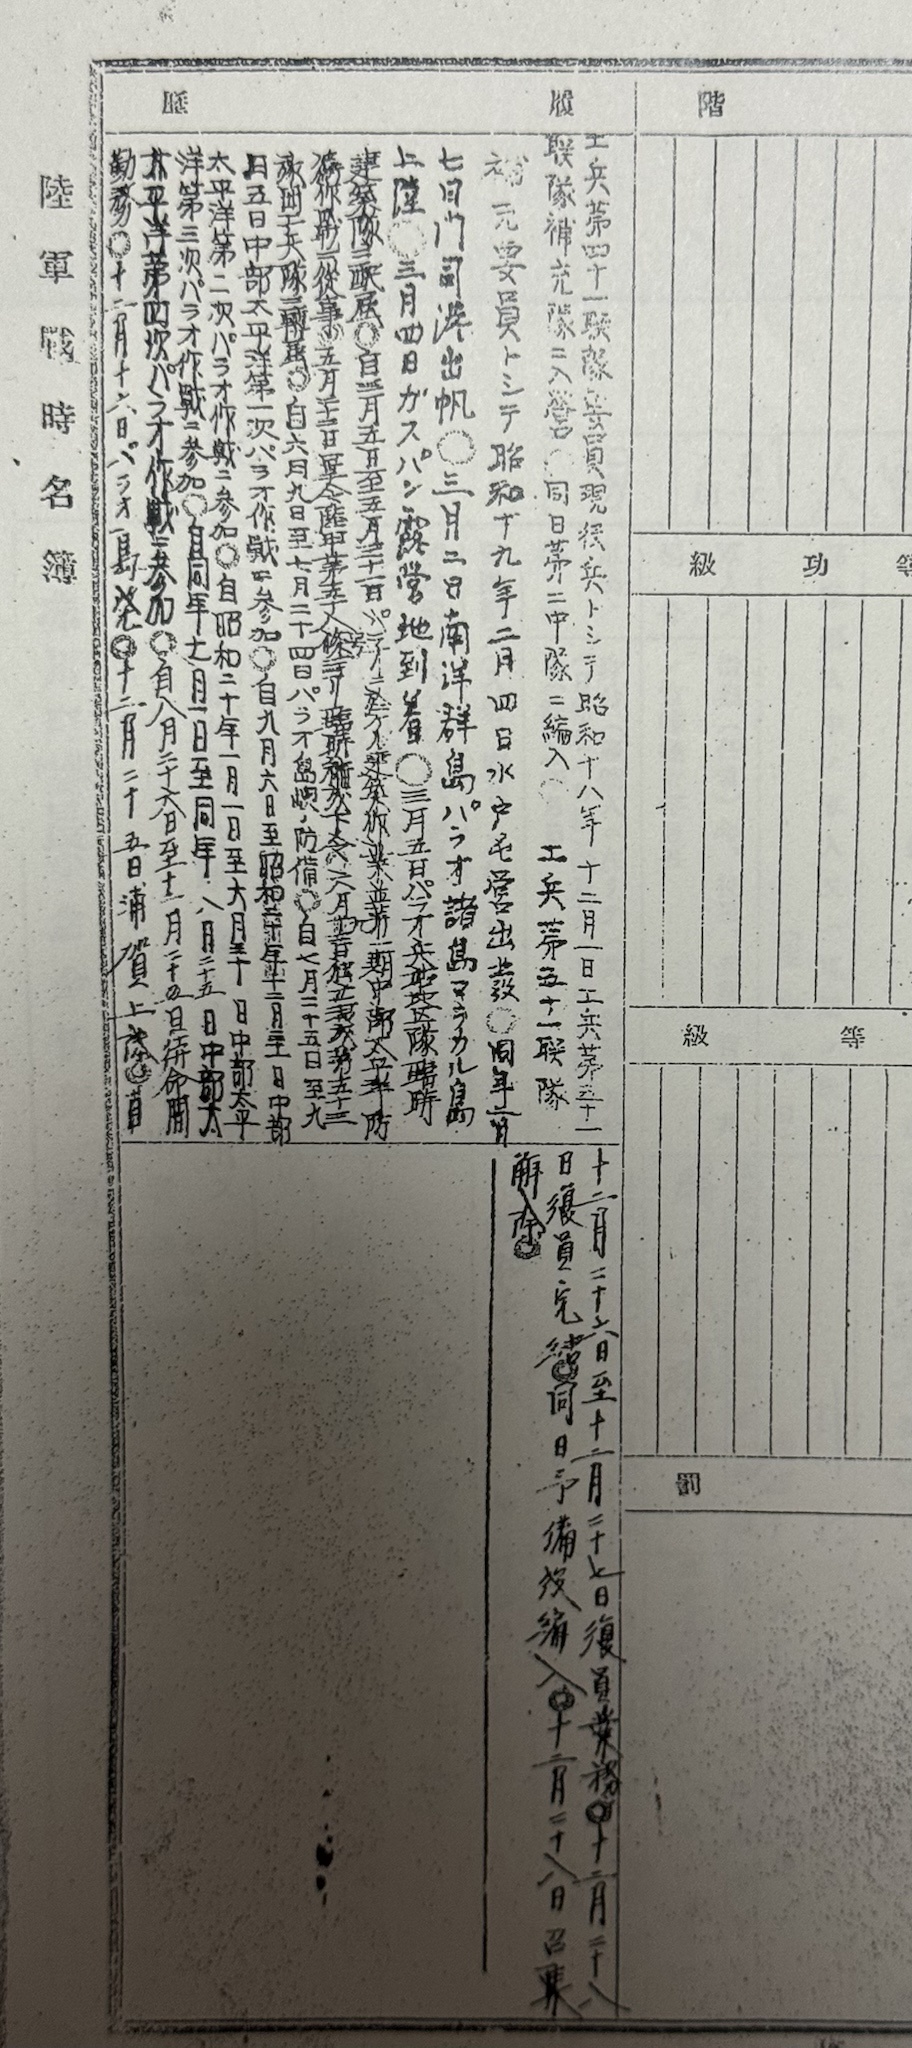 階
級
功
等
級
等
罰
履
歴
工兵第四十一聯隊要員現役兵トシテ昭和十八年十二月一日工兵第五十一
聯隊補充隊ニ入営○同日第二中隊ニ編入○ 工兵第五十一聯隊
補充要員トシテ昭和十九年二月四日水戸屯営出発○同年二月
七日門司港出帆○三月二日南洋群島パラオ諸島マラカル島
上陸○三月四日ガスパン露営地到着○三月五日パラオ兵站地区隊臨時
建築隊ニ配属○自三月五日至五月三十一日
作戦ニ従事○五月
旅団工兵隊ニ転属○自六月九日至七月二十四日パラオ島嶼ノ防備○自七月二十五日至九
月五日中部太平洋第一次パラオ作戦ニ参加○自九月六日至昭和十九年十二月三十一日中部
太平洋第二次パラオ作戦ニ参加○自昭和二十年一月一日至六月三十日中部太平
洋第三次パラオ作戦ニ参加○自同年七月一日至同年八月二十五日中部太
平洋第四次パラオ作戦ニ参加○自八月二十六日至十二月二十五日待命間
勤務○十二月十六日パラオ島発○十二月二十五日浦賀上陸○自
十二月二十六日至十二月二十七日復員業務○十二月二十八
日復員完結○同日予備役編入○十二月二十八日召集
解除○
陸軍戦時名簿